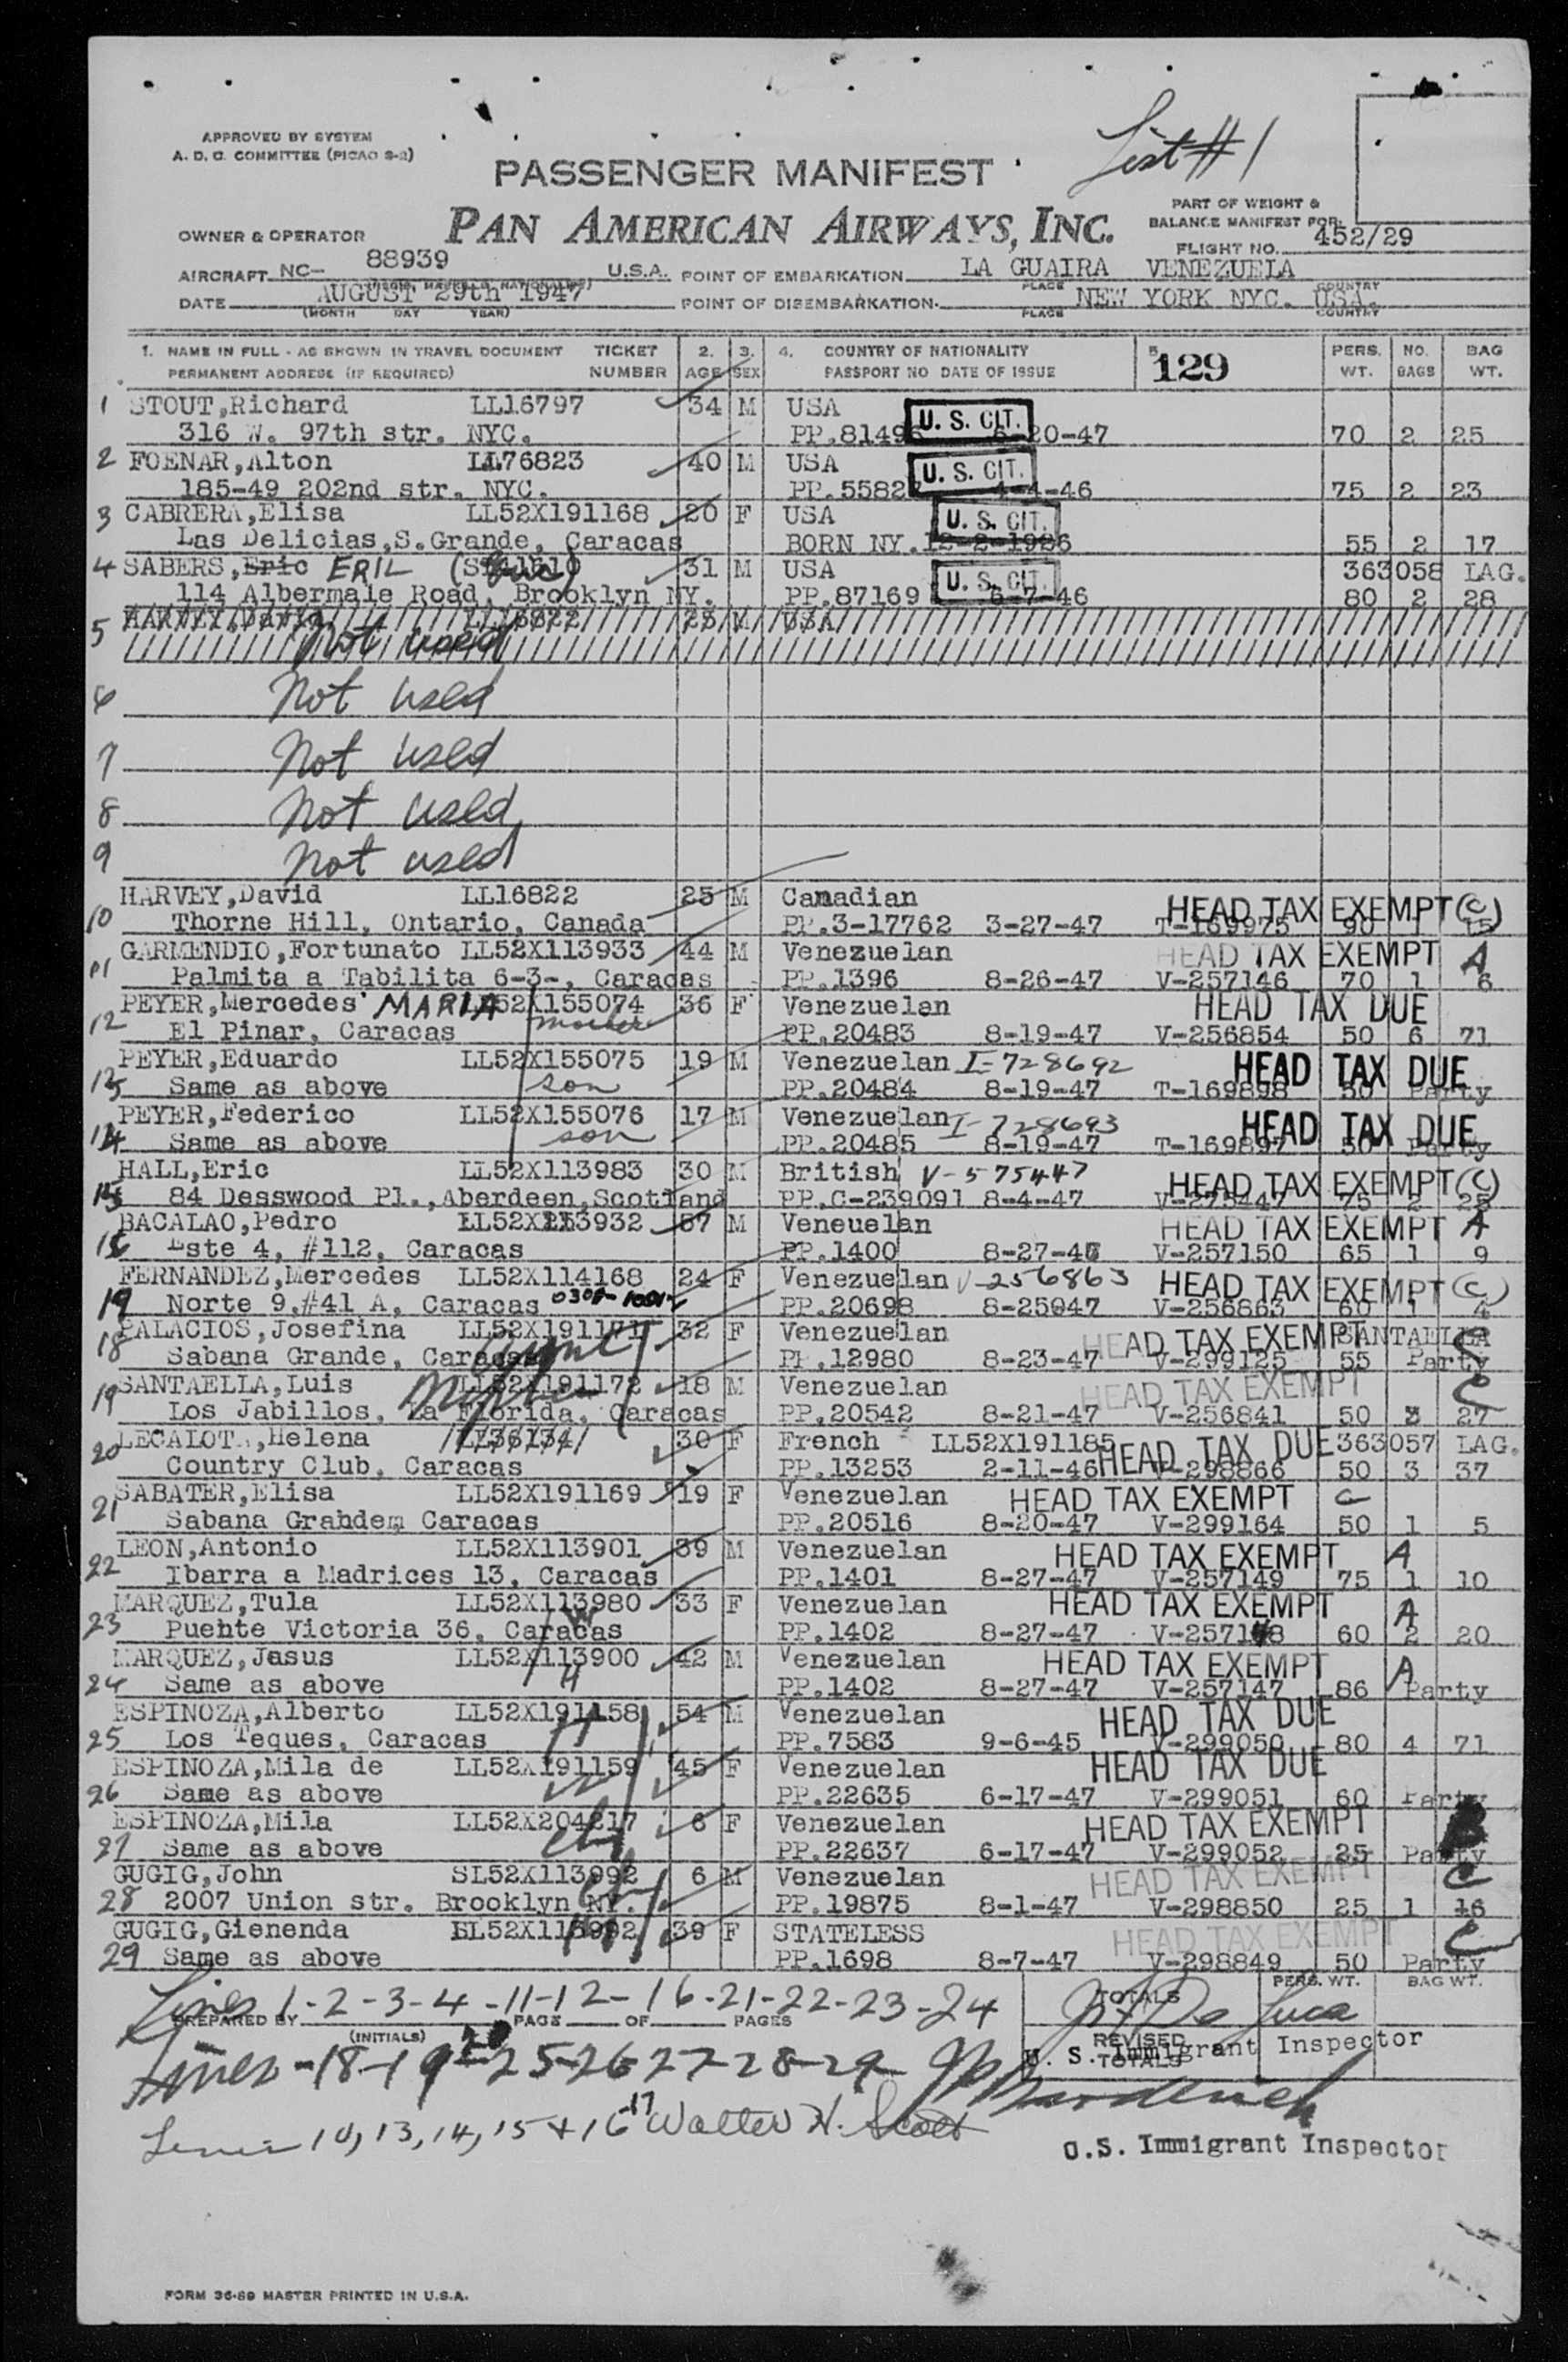 APPROVED BY SYSTEM
A. D. C. COMMITTEE (PICAO S-2)
List #1
PASSENGER MANIFEST
PART OF WEIGHT &
BALANCE MANIFEST FOR
OWNER & OPERATOR
PAN AMERICAN AIRWAYS, INC.
FLIGHT NO. 452/29
AIRCRAFT NC- 88939 U.S.A. POINT OF EMBARKATION LA GUAIRA VENEZUELA
PLACE COUNTRY
DATE AUGUST 29th 1947 POINT OF DISEMBARKATION NEW YORK NYC. USA.
(MONTH DAY YEAR) PLACE COUNTRY
1. NAME IN FULL - AS SHOWN IN TRAVEL DOCUMENT TICKET 2. 3. 4. COUNTRY OF NATIONALITY 5 129 PERS. NO. BAG
PERMANENT ADDRESS (IF REQUIRED) NUMBER AGE SEX PASSPORT NO DATE OF ISSUE WT. BAGS WT.
1 STOUT,Richard LL16797 34 M USA U. S. CIT.
316 W. 97th str. NYC. PP.8149 -20-47 70 2 25
2 FOENAR,Alton LL76823 40 M USA U. S. CIT.
185-49 202nd str. NYC. PP.5582 -4-46 75 2 23
3 CABRERA,Elisa LL52X191168 20 F USA U. S. CIT.
Las Delicias,S.Grande, Caracas BORN NY.12-2-1926 55 2 17
4 SABERS,Eric ERIL 31 M USA U. S. CIT. 363058 LAG.
114 Albermale Road, Brooklyn NY. PP.87169 6-7-46 80 2 28
5 HARVEY,David LL16822 25 M USA
not used
6 not used
7 not used
8 not used
9 not used
HARVEY,David LL16822 25 M Canadian HEAD TAX EXEMPT (C)
10 Thorne Hill, Ontario, Canada PP.3-17762 3-27-47 T-169975 90 1 15
GARMENDIO,Fortunato LL52X113933 44 M Venezuelan HEAD TAX EXEMPT A
11 Palmita a Tabilita 6-3-, Caracas PP.1396 8-26-47 V-257146 70 1 6
PEYER,Mercedes MARIA LL52X155074 36 F Venezuelan HEAD TAX DUE
12 El Pinar, Caracas mother PP.20483 8-19-47 V-256854 50 6 71
PEYER,Eduardo LL52X155075 19 M Venezuelan I-728692 HEAD TAX DUE
13 Same as above son PP.20484 8-19-47 T-169898 50 Party
PEYER,Federico LL52X155076 17 M Venezuelan I-728693 HEAD TAX DUE
14 Same as above son PP.20485 8-19-47 T-169897 50 Party
HALL,Eric LL52X113983 30 M British V-575447 HEAD TAX EXEMPT (C)
15 84 Desswood Pl.,Aberdeen,Scotland PP.C-239091 8-4-47 V-275447 75 2 25
BACALAO,Pedro LL52X113932 57 M Veneuelan HEAD TAX EXEMPT A
16 Este 4, #112, Caracas PP.1400 8-27-47 V-257150 65 1 9
FERNANDEZ,Mercedes LL52X114168 24 F Venezuelan V-256863 HEAD TAX EXEMPT (C)
17 Norte 9.#41 A, Caracas PP.20698 8-25047 V-256863 60 1 4
PALACIOS,Josefina LL52X191171 32 F Venezuelan HEAD TAX EXEMPT SANTAELLA
18 Sabana Grande, Caracas aunt PP.12980 8-23-47 V-299125 55 Party C
SANTAELLA,Luis LL52X191172 18 M Venezuelan HEAD TAX EXEMPT C
19 Los Jabillos, La Florida, Caracas nephew PP.20542 8-21-47 V-256841 50 3 27
LECALOT,Helena 30 F French LL52X191185 HEAD TAX DUE 363057 LAG.
20 Country Club, Caracas PP.13253 2-11-46 V-298866 50 3 37
SABATER,Elisa LL52X191169 19 F Venezuelan HEAD TAX EXEMPT C
21 Sabana Grahdem Caracas PP.20516 8-20-47 V-299164 50 1 5
LEON,Antonio LL52X113901 39 M Venezuelan HEAD TAX EXEMPT A
22 Ibarra a Madrices 13, Caracas PP.1401 8-27-47 V-257149 75 1 10
MARQUEZ,Tula LL52X113980 33 F Venezuelan HEAD TAX EXEMPT A
23 Puente Victoria 36, Caracas W PP.1402 8-27-47 V-257148 60 2 20
MARQUEZ,Jesus LL52X113900 42 M Venezuelan HEAD TAX EXEMPT A
24 Same as above H PP.1402 8-27-47 V-257147 86 Party
ESPINOZA,Alberto LL52X191158 54 M Venezuelan HEAD TAX DUE
25 Los Teques, Caracas H PP.7583 9-6-45 V-299050 80 4 71
ESPINOZA,Mila de LL52X191159 45 F Venezuelan HEAD TAX DUE
26 Same as above W PP.22635 6-17-47 V-299051 60 Party
ESPINOZA,Mila LL52X204217 6 F Venezuelan HEAD TAX EXEMPT B
27 Same as above ch PP.22637 6-17-47 V-299052 25 Party
GUGIG,John SL52X113992 6 M Venezuelan HEAD TAX EXEMPT C
28 2007 Union str. Brooklyn NY. ch PP.19875 8-1-47 V-298850 25 1 16
GUGIG,Gienenda LL52X113992 39 F STATELESS HEAD TAX EXEMPT C
29 Same as above PP.1698 8-7-47 V-298849 50 Party
Lines 1-2-3-4-11-12-16-21-22-23-24 TOTALS PERS. WT. BAG WT.
PREPARED BY (INITIALS) PAGE OF PAGES De Luca
REVISED TOTALS
U. S. Immigrant Inspector
Lines-18-19-20-25-26-27-28-29
Lines 10, 13, 14, 15 + 16 17 Walter H. Scott
U.S. Immigrant Inspector
FORM 36-89 MASTER PRINTED IN U.S.A.